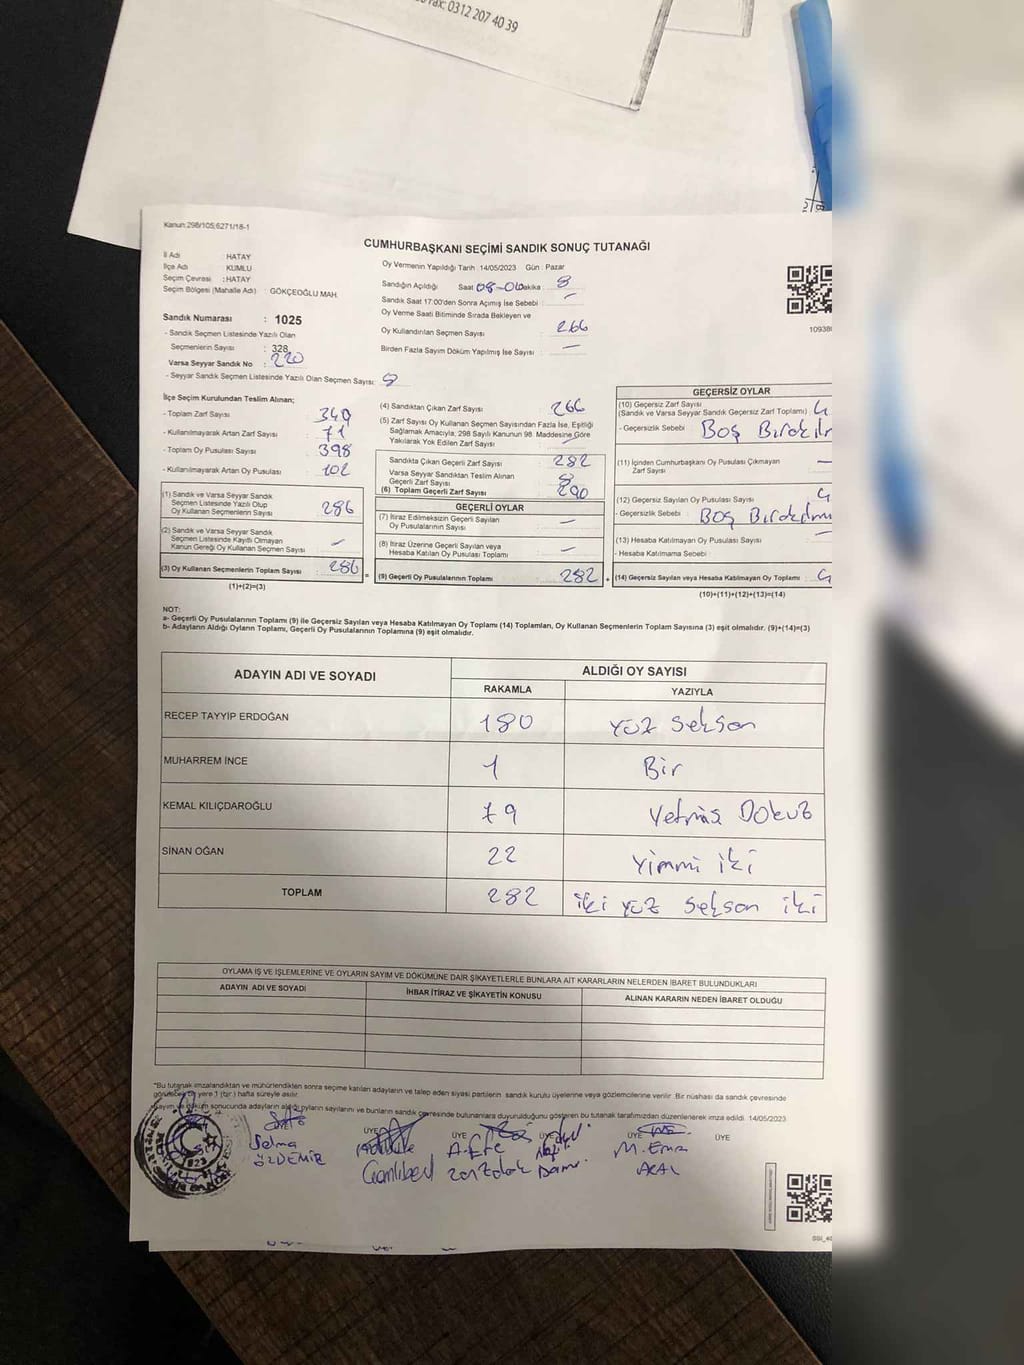 Fax: 0312 207 40 39
Kanun:298/105;6271/18-1
CUMHURBAŞKANI SEÇİMİ SANDIK SONUÇ TUTANAĞI
İl Adı : HATAY
İlçe Adı : KUMLU
Seçim Çevresi : HATAY
Seçim Bölgesi (Mahalle Adı) : GÖKÇEOĞLU MAH.
Sandık Numarası : 1025
- Sandık Seçmen Listesinde Yazılı Olan
Seçmenlerin Sayısı : 328
Varsa Seyyar Sandık No : 220
- Seyyar Sandık Seçmen Listesinde Yazılı Olan Seçmen Sayısı: 8
Oy Vermenin Yapıldığı Tarih :14/05/2023 Gün : Pazar
Sandığın Açıldığı Saat 08-00 Dakika : 8
Sandık Saat 17:00'den Sonra Açımış İse Sebebi : —
Oy Verme Saati Bitiminde Sırada Bekleyen ve
Oy Kullandırılan Seçmen Sayısı : 266
Birden Fazla Sayım Döküm Yapılmış İse Sayısı : —
10938
İlçe Seçim Kurulundan Teslim Alınan;
- Toplam Zarf Sayısı 340
- Kullanılmayarak Artan Zarf Sayısı 71
- Toplam Oy Pusulası Sayısı 398
- Kullanılmayarak Artan Oy Pusulası 102
(1) Sandık ve Varsa Seyyar Sandık
Seçmen Listesinde Yazılı Olup
Oy Kullanan Seçmenlerin Sayısı 286
(2) Sandık ve Varsa Seyyar Sandık
Seçmen Listesinde Kayıtlı Olmayan
Kanun Gereği Oy Kullanan Seçmen Sayısı —
(3) Oy Kullanan Seçmenlerin Toplam Sayısı 286
(1)+(2)=(3)
(4) Sandıktan Çıkan Zarf Sayısı 266
(5) Zarf Sayısı Oy Kullanan Seçmen Sayısından Fazla İse, Eşitliği
Sağlamak Amacıyla, 298 Sayılı Kanunun 98. Maddesine Göre
Yakılarak Yok Edilen Zarf Sayısı —
Sandıkta Çıkan Geçerli Zarf Sayısı 282
Varsa Seyyar Sandıktan Teslim Alınan
Geçerli Zarf Sayısı 8
(6) Toplam Geçerli Zarf Sayısı 290
GEÇERLİ OYLAR
(7) İtiraz Edilmeksizin Geçerli Sayılan
Oy Pusulalarının Sayısı —
(8) İtiraz Üzerine Geçerli Sayılan veya
Hesaba Katılan Oy Pusulası Toplamı —
= (9) Geçerli Oy Pusulalarının Toplamı 282
GEÇERSİZ OYLAR
(10) Geçersiz Zarf Sayısı
(Sandık ve Varsa Seyyar Sandık Geçersiz Zarf Toplamı) 4
- Geçersizlik Sebebi : Boş Bırakılr
(11) İçinden Cumhurbaşkanı Oy Pusulası Çıkmayan
Zarf Sayısı —
(12) Geçersiz Sayılan Oy Pusulası Sayısı 4
- Geçersizlik Sebebi : Boş Bırakılmı
(13) Hesaba Katılmayan Oy Pusulası Sayısı —
- Hesaba Katılmama Sebebi :
+ (14) Geçersiz Sayılan veya Hesaba Katılmayan Oy Toplamı : 4
(10)+(11)+(12)+(13)=(14)
NOT:
a- Geçerli Oy Pusulalarının Toplamı (9) ile Geçersiz Sayılan veya Hesaba Katılmayan Oy Toplamı (14) Toplamları, Oy Kullanan Seçmenlerin Toplam Sayısına (3) eşit olmalıdır. (9)+(14)=(3)
b- Adayların Aldığı Oyların Toplamı, Geçerli Oy Pusulalarının Toplamına (9) eşit olmalıdır.
ADAYIN ADI VE SOYADI ALDIĞI OY SAYISI
RAKAMLA YAZIYLA
RECEP TAYYİP ERDOĞAN 180 Yüz Seksen
MUHARREM İNCE 1 Bir
KEMAL KILIÇDAROĞLU 79 Yetmiş Dokuz
SİNAN OĞAN 22 Yirmi iki
TOPLAM 282 iki yüz Seksen iki
OYLAMA İŞ VE İŞLEMLERİNE VE OYLARIN SAYIM VE DÖKÜMÜNE DAİR ŞİKAYETLERLE BUNLARA AİT KARARLARIN NELERDEN İBARET BULUNDUKLARI
ADAYIN ADI VE SOYADI İHBAR İTİRAZ VE ŞİKAYETİN KONUSU ALINAN KARARIN NEDEN İBARET OLDUĞU
*Bu tutanak imzalandıktan ve mühürlendikten sonra seçime katılan adayların ve talep eden siyasi partilerin sandık kurulu üyelerine veya gözlemcilerine verilir. Bir nüshası da sandık çevresinde
görülebilecek bir yere 1 (bir) hafta süreyle asılır.
Sayım ve döküm sonucunda adayların aldığı oyların sayılarını ve bunların sandık çevresinde bulunanlara duyurulduğunu gösteren bu tutanak tarafımızdan düzenlenerek imza edildi. 14/05/2023
ÜYE ÜYE ÜYE ÜYE ÜYE
Selma A.Efe M.Emin
ÖZDEMİR Canlıbel AKAL